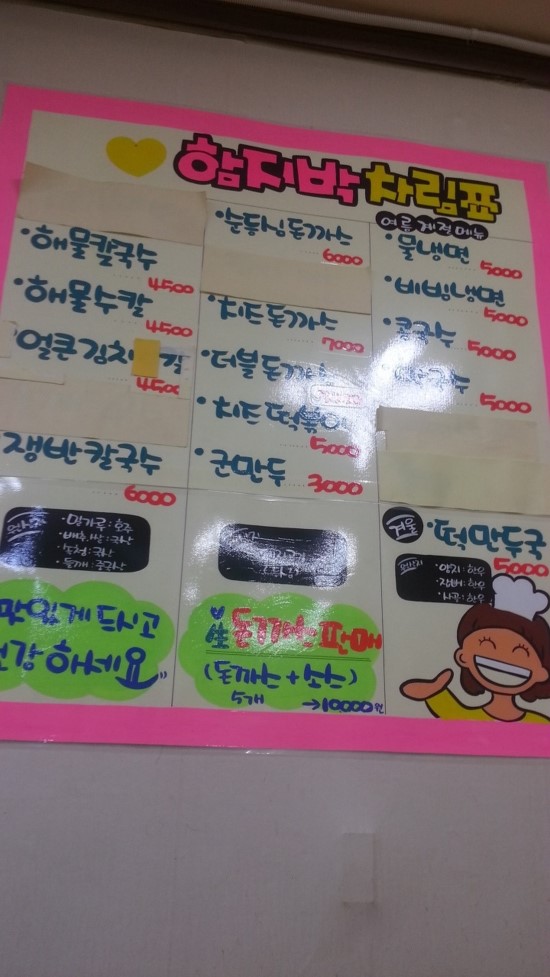 함지박 차림표
해물칼국수
4500
해물수칼
4500
얼큰김치 칼
4500
쟁반칼국수
6000
순등심돈까스
6000
치즈돈까스
7000
더블돈까스
치즈떡볶이
5000
군만두
3000
여름계절메뉴
물냉면
5000
비빔냉면
5000
콩국수
5000
5000
원산지
밀가루:호주
배추.쌀:국산
조개:중국산
맛있게 드시고
건강 하세요
生 돈까스 판매
(돈까스+소스)
5개 →10000원
겨울
떡만두국
5000
원산지
양지:한우
잡뼈:한우
사골:한우